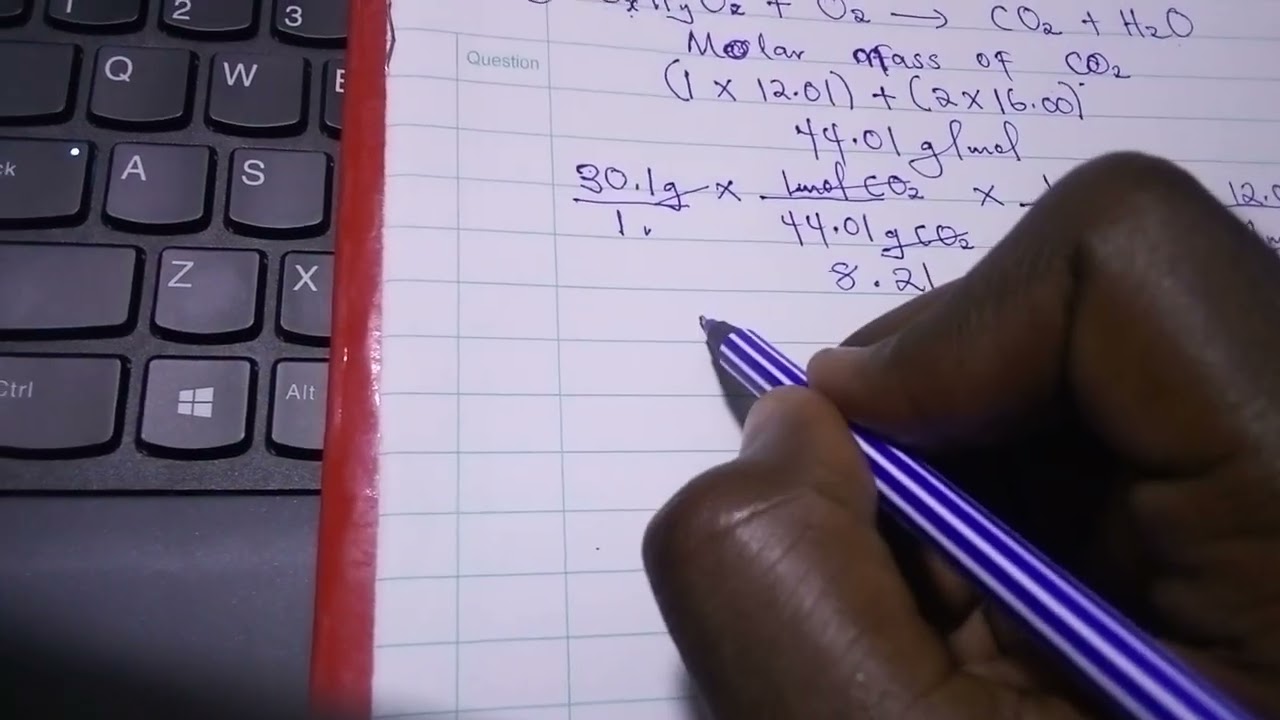 1 2 3
Q W E
A S
Z X
Ctrl Alt
Question
+ O₂ → CO₂ + H₂O
Molar mass of CO₂
(1 × 12.01) + (2 × 16.00)
44.01 g/mol
30.1g × 1mol CO₂ ×
1 44.01 g CO₂
8.21